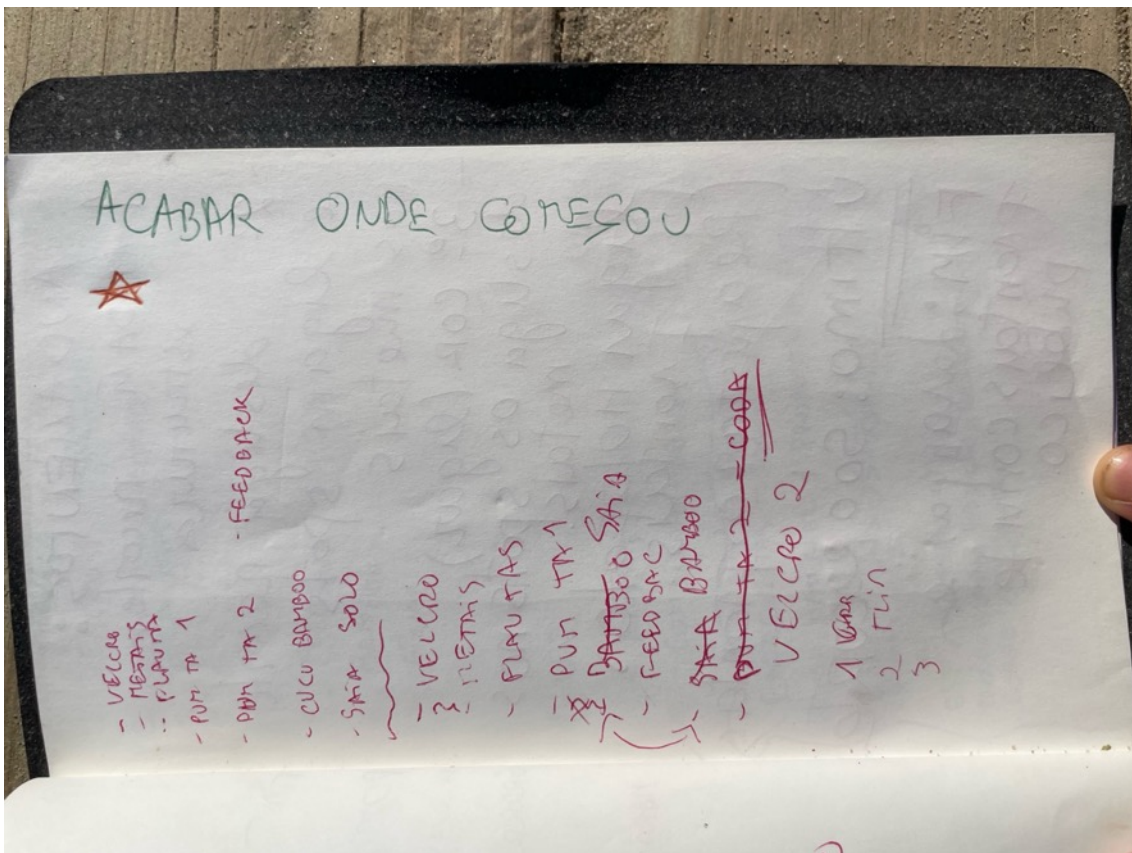 ACABAR ONDE COMEÇOU
- VELCRO
- METAIS
- FLAUTA
- PUM TA 1
- PUM TA 2 - FEEDBACK
- CUCU BAMBOO
- SAIA SOLO
- VELCRO
- METAIS
- FLAUTAS
- PUM TA 1
- BAMBOO SAIA
- FEEDBAC
- SAIA BAMBOO
- PUM TA 2 = CODA
VELCRO 2
1
2 FLIN
3